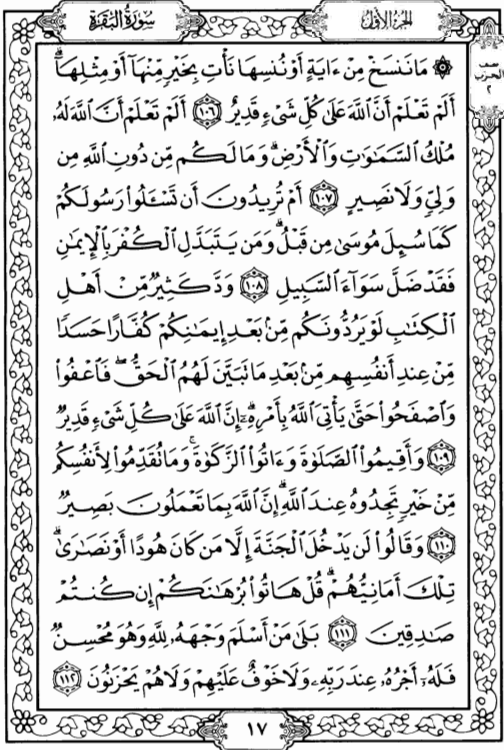 سورة البقرة
الجزء الأول
نصف
الحزب
٢
۞ مَا نَنسَخْ مِنْ ءَايَةٍ أَوْ نُنسِهَا نَأْتِ بِخَيْرٍ مِّنْهَآ أَوْ مِثْلِهَآ ۗ
أَلَمْ تَعْلَمْ أَنَّ ٱللَّهَ عَلَىٰ كُلِّ شَىْءٍ قَدِيرٌ ١٠٦ أَلَمْ تَعْلَمْ أَنَّ ٱللَّهَ لَهُۥ
مُلْكُ ٱلسَّمَـٰوَٰتِ وَٱلْأَرْضِ ۗ وَمَا لَكُم مِّن دُونِ ٱللَّهِ مِن
وَلِىٍّ وَلَا نَصِيرٍ ١٠٧ أَمْ تُرِيدُونَ أَن تَسْـَٔلُوا۟ رَسُولَكُمْ
كَمَا سُئِلَ مُوسَىٰ مِن قَبْلُ ۗ وَمَن يَتَبَدَّلِ ٱلْكُفْرَ بِٱلْإِيمَـٰنِ
فَقَدْ ضَلَّ سَوَآءَ ٱلسَّبِيلِ ١٠٨ وَدَّ كَثِيرٌ مِّنْ أَهْلِ
ٱلْكِتَـٰبِ لَوْ يَرُدُّونَكُم مِّنۢ بَعْدِ إِيمَـٰنِكُمْ كُفَّارًا حَسَدًا
مِّنْ عِندِ أَنفُسِهِم مِّنۢ بَعْدِ مَا تَبَيَّنَ لَهُمُ ٱلْحَقُّ ۖ فَٱعْفُوا۟
وَٱصْفَحُوا۟ حَتَّىٰ يَأْتِىَ ٱللَّهُ بِأَمْرِهِۦٓ ۗ إِنَّ ٱللَّهَ عَلَىٰ كُلِّ شَىْءٍ قَدِيرٌ
١٠٩ وَأَقِيمُوا۟ ٱلصَّلَوٰةَ وَءَاتُوا۟ ٱلزَّكَوٰةَ ۚ وَمَا تُقَدِّمُوا۟ لِأَنفُسِكُم
مِّنْ خَيْرٍ تَجِدُوهُ عِندَ ٱللَّهِ ۗ إِنَّ ٱللَّهَ بِمَا تَعْمَلُونَ بَصِيرٌ
١١٠ وَقَالُوا۟ لَن يَدْخُلَ ٱلْجَنَّةَ إِلَّا مَن كَانَ هُودًا أَوْ نَصَـٰرَىٰ ۗ
تِلْكَ أَمَانِيُّهُمْ ۗ قُلْ هَاتُوا۟ بُرْهَـٰنَكُمْ إِن كُنتُمْ
صَـٰدِقِينَ ١١١ بَلَىٰ مَنْ أَسْلَمَ وَجْهَهُۥ لِلَّهِ وَهُوَ مُحْسِنٌ
فَلَهُۥٓ أَجْرُهُۥ عِندَ رَبِّهِۦ وَلَا خَوْفٌ عَلَيْهِمْ وَلَا هُمْ يَحْزَنُونَ ١١٢
١٧